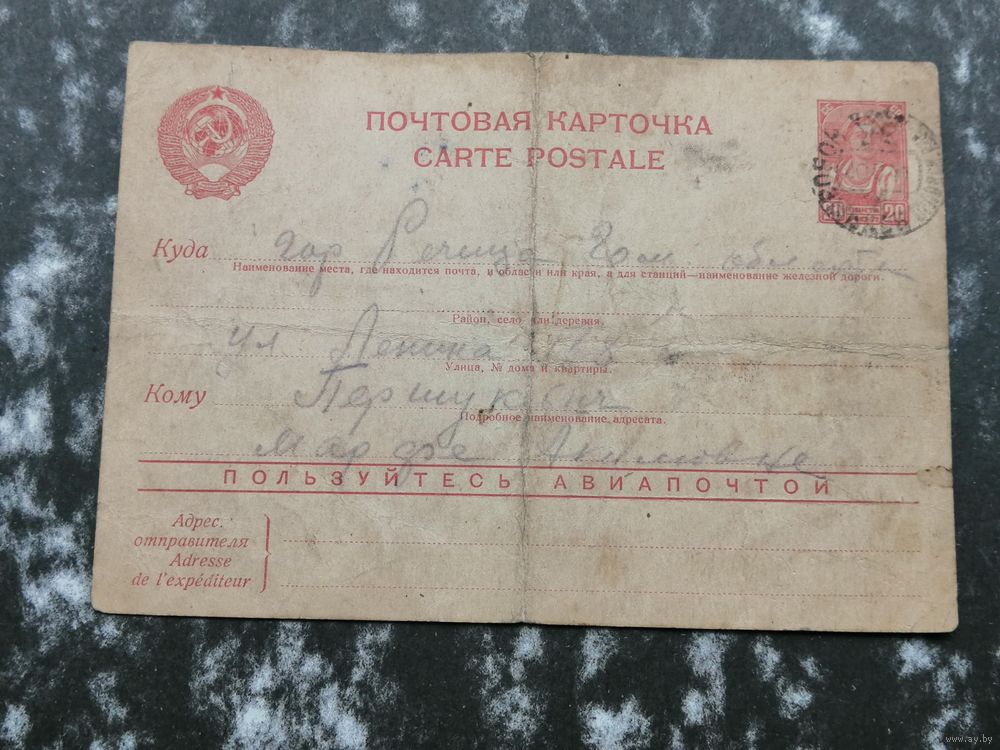 ПОЧТОВАЯ КАРТОЧКА
CARTE POSTALE
20 20
Куда гор Речица Гом области
Наименование места, где находится почта, и области или края, а для станций—наименование железной дороги.
Район, село или деревня.
ул Ленина
Улица, № дома и квартиры.
Кому Першукевич
Подробное наименование адресата.
Марфе Акимовне
ПОЛЬЗУЙТЕСЬ АВИАПОЧТОЙ
Адрес.
отправителя
Adresse
de l'expéditeur
www.ay.by